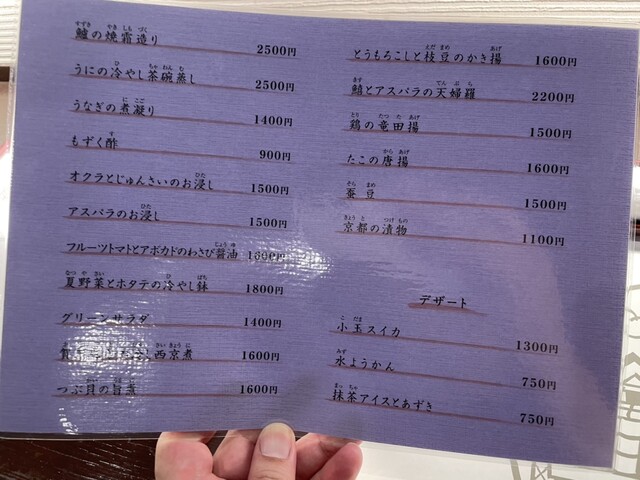 鱸の焼霜造り 2500円
うにの冷やし茶碗蒸し 2500円
うなぎの煮凝り 1400円
もずく酢 900円
オクラとじゅんさいのお浸し 1500円
アスパラのお浸し 1500円
フルーツトマトとアボカドのわさび醤油
夏野菜とホタテの冷やし鉢 1800円
グリーンサラダ 1400円
西京煮 1600円
つぶ貝の旨煮 1600円
とうもろこしと枝豆のかき揚 1600円
鱚とアスパラの天婦羅 2200円
鶏の竜田揚 1500円
たこの唐揚 1600円
蚕豆 1500円
京都の漬物 1100円
デザート
小玉スイカ 1300円
水ようかん 750円
抹茶アイスとあずき 750円